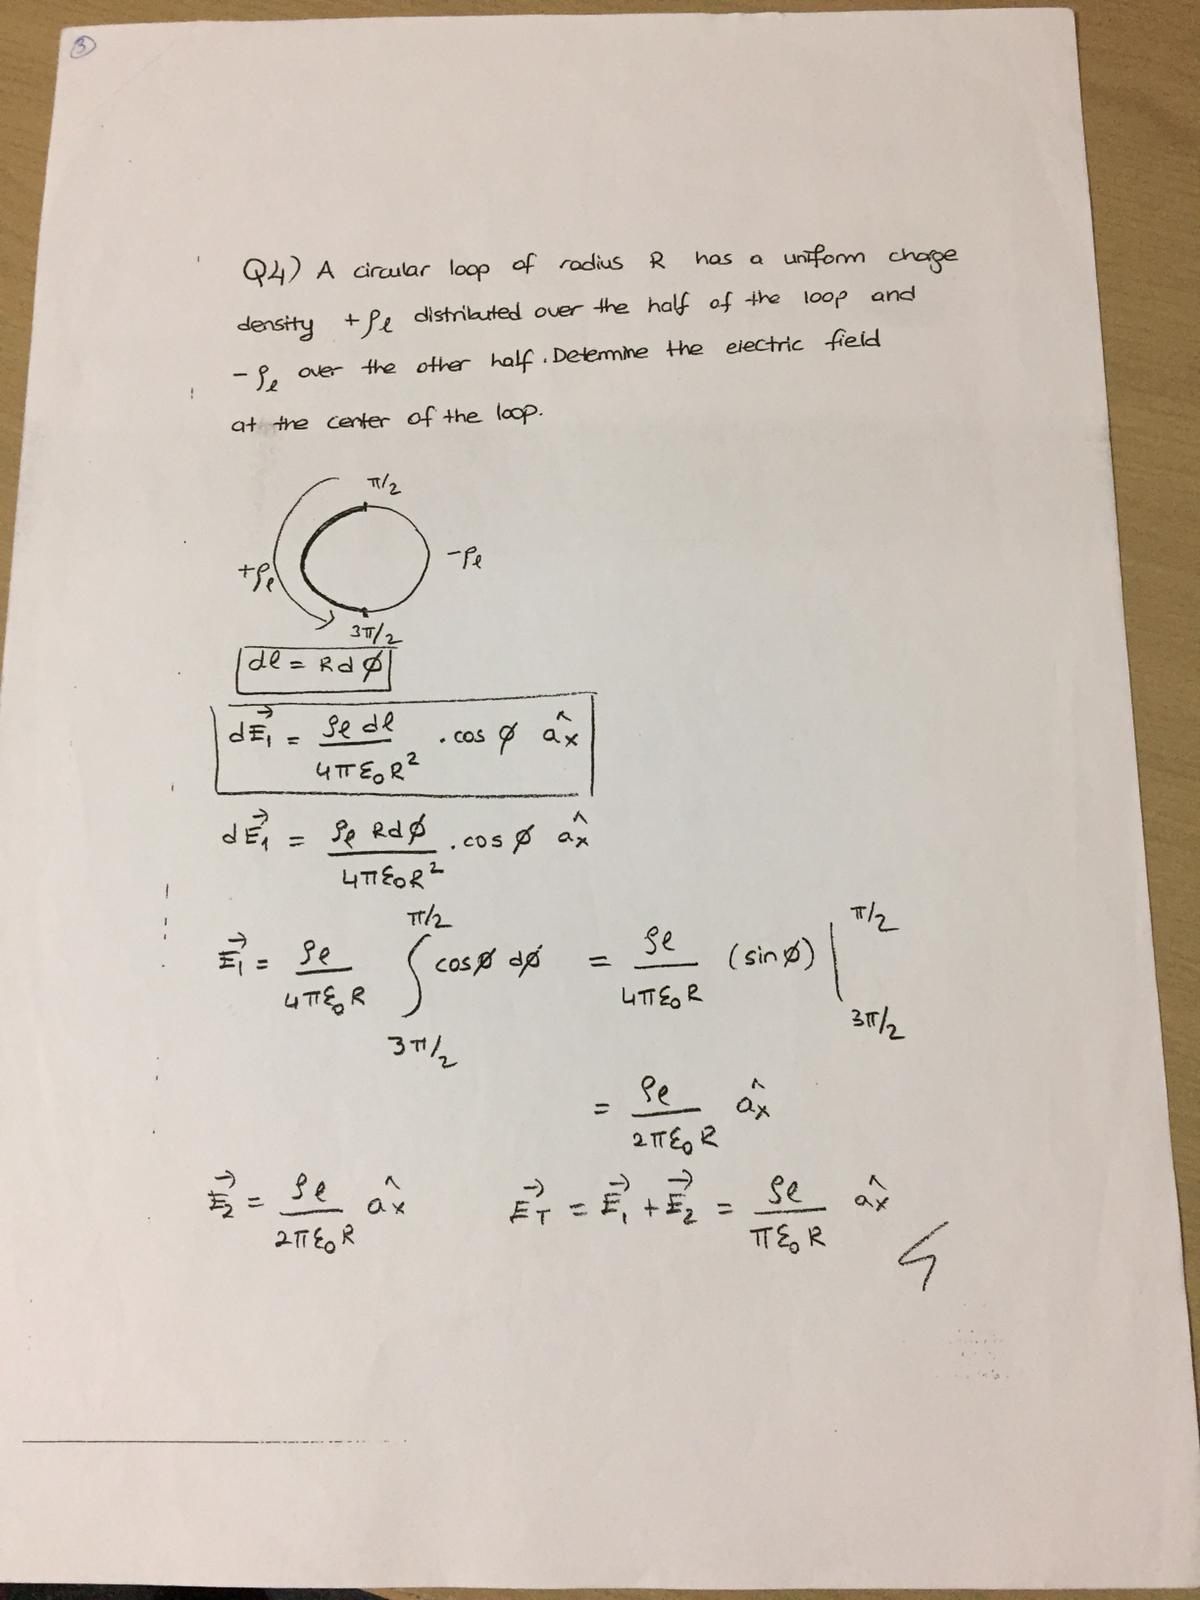 3
Q4) A circular loop of radius R has a uniform charge
density +ρℓ distributed over the half of the loop and
-ρℓ over the other half. Determine the electric field
at the center of the loop.
π/2
+ρℓ
-ρℓ
3π/2
dℓ = R dφ
dE⃗₁ = ρℓ dℓ / 4πε₀R² . cos φ âx
dE⃗₁ = ρℓ R dφ / 4πε₀R² . cos φ âx
E⃗₁ = ρℓ / 4πε₀R ∫_{3π/2}^{π/2} cosφ dφ = ρℓ / 4πε₀R (sinφ) |_{3π/2}^{π/2}
= ρℓ / 2πε₀R âx
E⃗₂ = ρℓ / 2πε₀R âx E⃗T = E⃗₁ + E⃗₂ = ρℓ / πε₀R âx